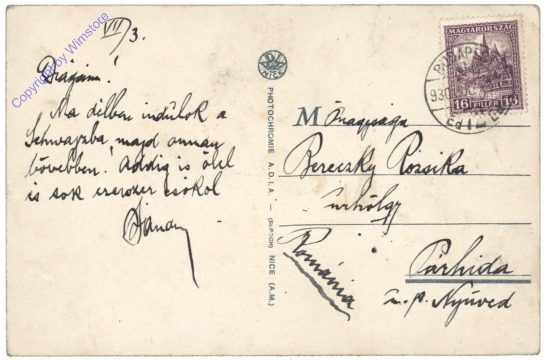 VII/3.
Drágám!
Ma délben indúlok a
Schwajzba, majd onnan
bővebben. Addig is ölel
is sok ezerszer csókol
Sándor
Copyright by Winstore
PHOTOCHROMIE A.D.I.A. NICE (A.M.)
MAGYARORSZÁG
16 FILLÉR 16
BUDAPEST
930
M Őnagysága
Bereczky Rózsika
úrhölgy
Románia
Párhida
u. p. Nyüved